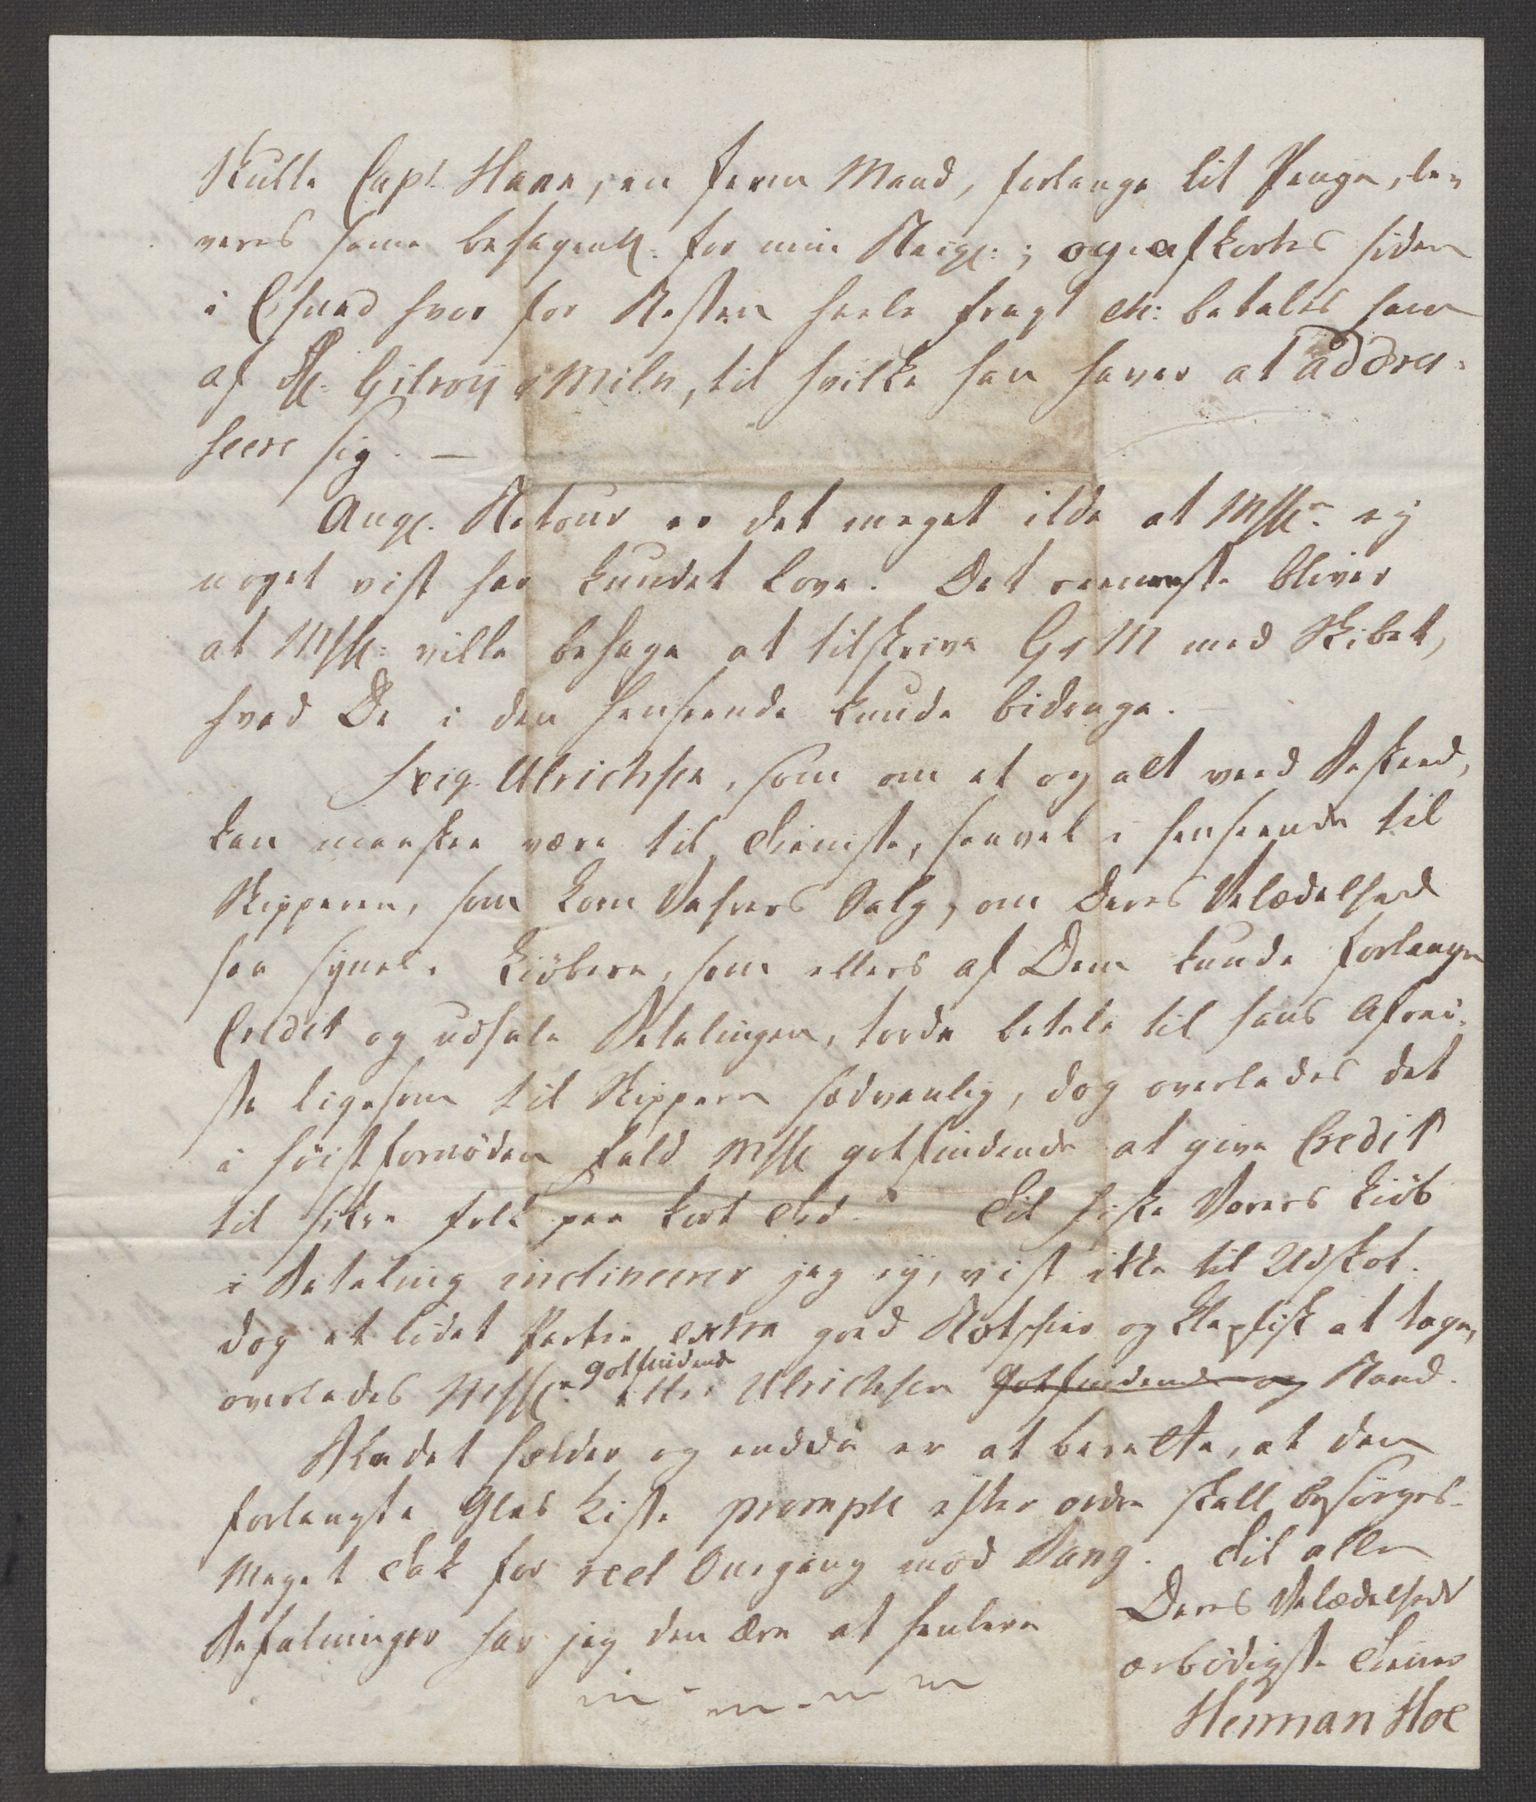 Skulle Capt. Haae, en ferm Mand, forlange lit Penge, le-
veres samme behageligt for min Regn:; og afkortes siden
i Chned hvor for Resten heele fragt etc: betales ham
af Hr. Gilroy & Miln, til hvilke han haver at addres-
seere sig. —
Ang. Retour er det meget ilde at MHr. ey
noget vist har kundet love. Det neermeste bliver
at MHr: ville behage at tilskrive G & M med Skibet,
hvad De i den henseende kunde bidrage.
Seig. Ulrichsen, som om et og alt veed Beskeed,
kan maaskee være til Tieneste, saavel i henseende til
Skipperen, som Korn Vahrers Salg, om Deres Velædelhed
saa synes. Kiøbere, som ellers af Dem kunde forlange
Credit og udhale Betalingen, torde betale til hans Afrei-
se ligesom til Skippere sædvanlig, dog overlades det
i høistfornøden fald MHr gotfindende at give Credit
til sikre folk paa kort Tid. Til Fiske Varers Kiøb
i Betaling inclinerer jeg ey, vist ikke til Udskot.
dog et lidet Partie extra goed Rotskier og Klepfisk at tage,
overlades MHrs gotfindende eller Ulrichsen Gotfindende og Raad.
Bladet hælder og endda er at berette, at den
forlangte Glas Kiste prompte efter ordre skall besørges.
Meget Tak for reel Omgang mod Bang. Til alle
Befalninger har jeg den Ære at henleve
Deres Velædelhed
ærbødigste Tiener
Herman Hoe